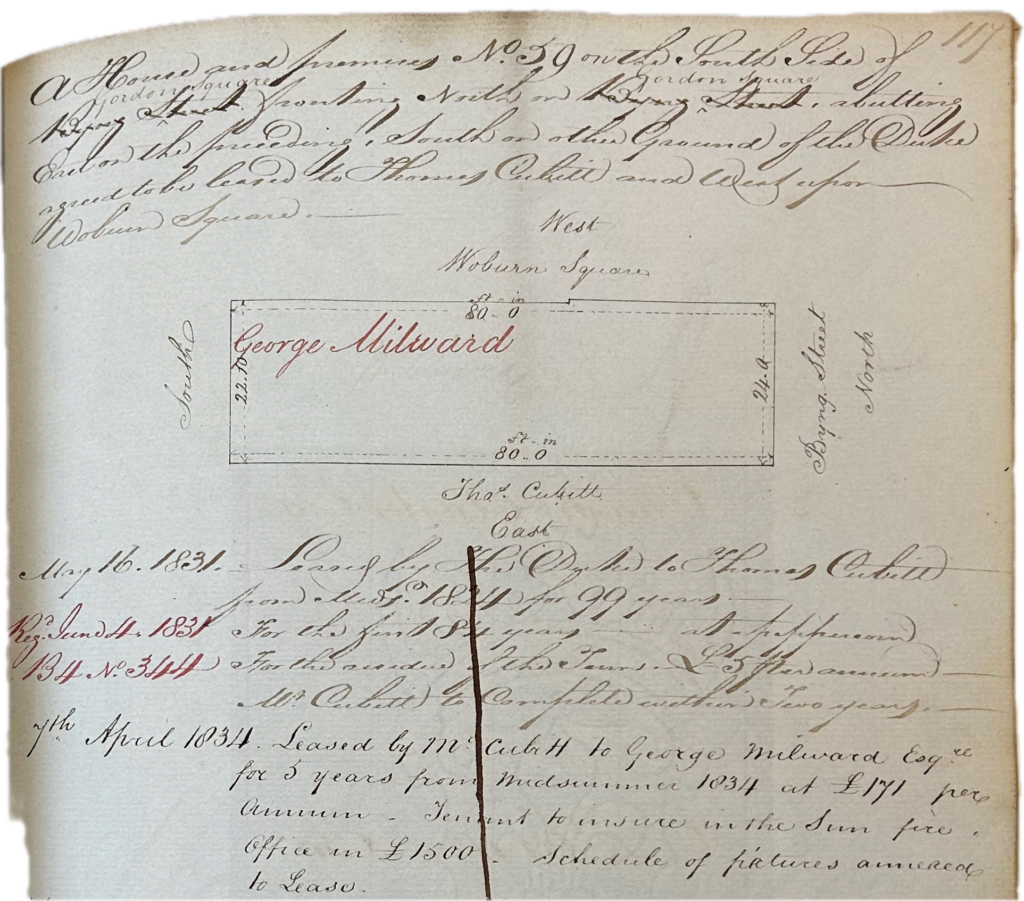 117
A House and premises No. 59 on the South Side of
Gordon Square Gordon Square
Byng Street fronting North on Byng Street, abutting
East on the preceding, South on other Ground of the Duke
agreed to be leased to Thomas Cubitt and West upon
Woburn Square.
West
Woburn Square
ft - in
80 - 0
George Milward
South
22.10
24.0
Byng Street
North
ft - in
80 - 0
Thos. Cubitt
East
May 16. 1831. Leased by The Duke to Thomas Cubitt
from Midsr. 1824 for 99 years
Regd. June 4. 1831 For the first 84 years at a peppercorn
B4 No. 344 For the residue of the Term £5 per annum
Mr. Cubitt to complete within Two years.
7th April 1834. Leased by Mr. Cubitt to George Milward Esqre
for 5 years from Midsummer 1834 at £171 per
Annum - Tenant to insure in the Sun fire
Office in £1500 - Schedule of fixtures annexed
to Lease.